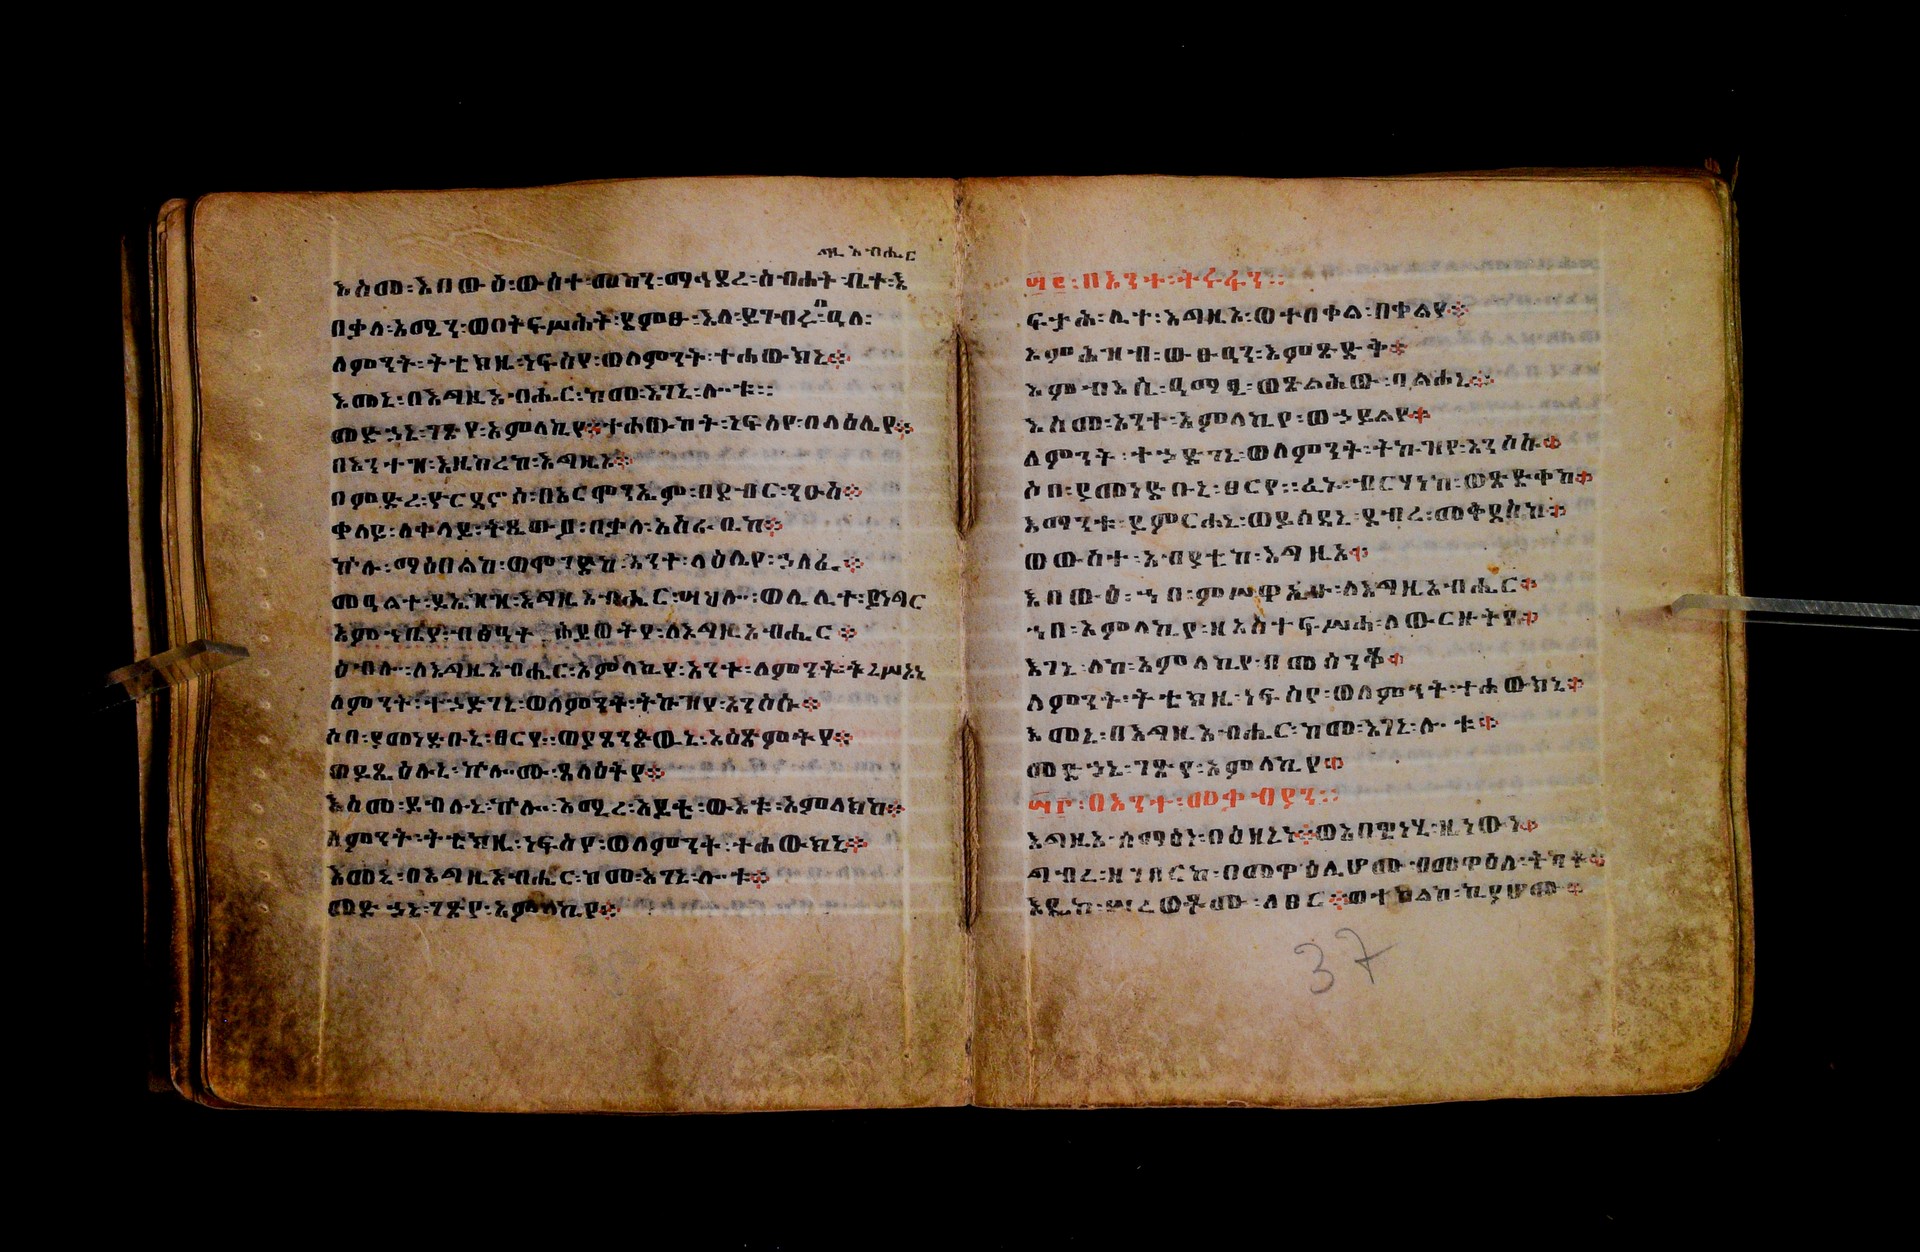 ግዚአብሔር
እስመ፡እበውዕ፡ውስተ፡መካን፡ማኅደረ፡ስብሐት፡ቤተ፡እ
በቃለ፡አሚን፡ወበትፍሥሕት፡ደምፁ፡እለ፡ይገብሩ፡በዓለ፡
ለምንት፡ትቴክዚ፡ነፍስየ፡ወለምንት፡ተሐውክኒ፨
እመኒ፡በእግዚአብሔር፡ከመ፡እገኒ፡ሎቱ።
መድኃኒ፡ገጽየ፡አምላኪየ፨ተሐውከት፡ነፍስየ፡በላዕሌየ፨
በእንተዝ፡እዜከረከ፡እግዚኦ፨
በምድረ፡ዮርዳኖስ፡በአርሞንኤም፡በደብር፡ንዑስ፨
ቀላይ፡ለቀላይ፡ትጼውዖ፡በቃለ፡አስራቢከ፨
ኵሉ፡ማዕበልከ፡ወሞገድከ፡እንተ፡ላዕሌየ፡ኃለፈ፨
መዓልተ፡ይኤዝዝ፡እግዚአብሔር፡ሣህሎ፡ወሌሊተ፡ይነግር
እምኀቤየ፡ብፅዓተ ሕይወትየ፡ለእግዚአብሔር፨
ዕብሎ፡ለእግዚአብሔር፡አምላኪየ፡አንተ፡ለምንት፡ትረሥአኒ
ለምንት፡ተኃድገኒ፡ወለምንት፡ትኩዝየ፡አንሶሱ፨
ሶበ፡ያመነድቡኒ፡ፀርየ።ወያጸንጵዉኒ፡አዕጽምትየ፨
ወይጼዕሉኒ፡ኵሎሙ፡ጸላዕትየ፨
እስመ፡ይብሉኒ፡ኵሎ፡አሚረ፡አይቴ፡ውእቱ፡አምላክከ፨
ለምንት፡ትቴክዚ፡ነፍስየ፡ወለምንት፡ተሐውክኒ፨
እመኒ፡በእግዚአብሔር፡ከመ፡እገኒ፡ሎቱ፨
መድኃኒ፡ገጽየ፡አምላኪየ፨
፵፪፡በእንተ፡ትሩፋን።
ፍታሕ፡ሊተ፡እግዚኦ፡ወተበቀል፡በቀልየ፨
እምሕዝብ፡ውፁዓን፡እምጽድቅ፨
እምብእሲ፡ዓማፂ፡ወጽልሕው፡ባልሐኒ፨
እስመ፡አንተ፡አምላኪየ፡ወኃይልየ፨
ለምንት፡ተኃድገኒ፡ወለምንት፡ትኩዝየ፡አንሶሱ፨
ሶበ፡ያመነድቡኒ፡ፀርየ።ፈኑ፡ብርሃነከ፡ወጽድቀከ፨
እማንቱ፡ይምርሐኒ፡ወይስዳኒ፡ደብረ፡መቅደስከ፨
ወውስተ፡አብያቲከ፡እግዚኦ፨
እበውዕ፡ኀበ፡ምሥዋዒሁ፡ለእግዚአብሔር፨
ኀበ፡አምላኪየ፡ዘአስተፍሥሐ፡ለውርዙትየ፨
እገኒ፡ለከ፡አምላኪየ፡በመሰንቆ፨
ለምንት፡ትቴክዚ፡ነፍስየ፡ወለምንት፡ተሐውክኒ፨
እመኒ፡በእግዚአብሔር፡ከመ፡እገኒ፡ሎቱ፨
መድኃኒ፡ገጽየ፡አምላኪየ፨
፵፫፡በእንተ፡መቀብያን።
እግዚኦ፡ሰማዕነ፡በዕዘኒነ፨ወአበዊነሂ፡ዜነውነ፨
ግብረ፡ዘገበርከ፡በመዋዕሊሆሙ፡በመዋዕለ፡ትካት፨
እዴከ፡ሠረወቶሙ፡ለፀር፨ወተከልከ፡ኪያሆሙ፨
37